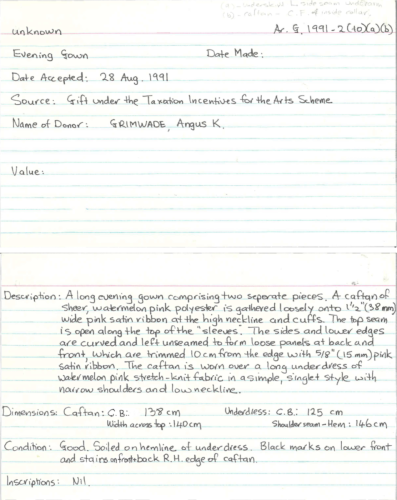 unknown
Ar. G. 1991-2(10)(a)(b)
Evening Gown
Date Made:
Date Accepted: 28 Aug. 1991
Source: Gift under the Taxation Incentives for the Arts Scheme
Name of Donor: GRIMWADE, Angus K.
Value:
Description: A long evening gown comprising two seperate pieces. A caftan of
sheer, watermelon pink polyester is gathered loosely onto 1½"(38mm)
wide pink satin ribbon at the high neckline and cuffs. The top seam
is open along the top of the "sleeves". The sides and lower edges
are curved and left unseamed to form loose panels at back and
front, which are trimmed 10cm from the edge with 5/8"(15mm) pink
satin ribbon. The caftan is worn over a long underdress of
watermelon pink stretch-knit fabric in a simple, singlet style with
narrow shoulders and low neckline.
Dimensions: Caftan: C.B: 138 cm Underdress: C.B: 125 cm
Width across top: 140cm Shoulder seam - Hem: 146cm
Condition: Good. Soiled on hemline of underdress. Black marks on lower front
and stains on front+back R.H. edge of caftan.
Inscriptions: Nil.